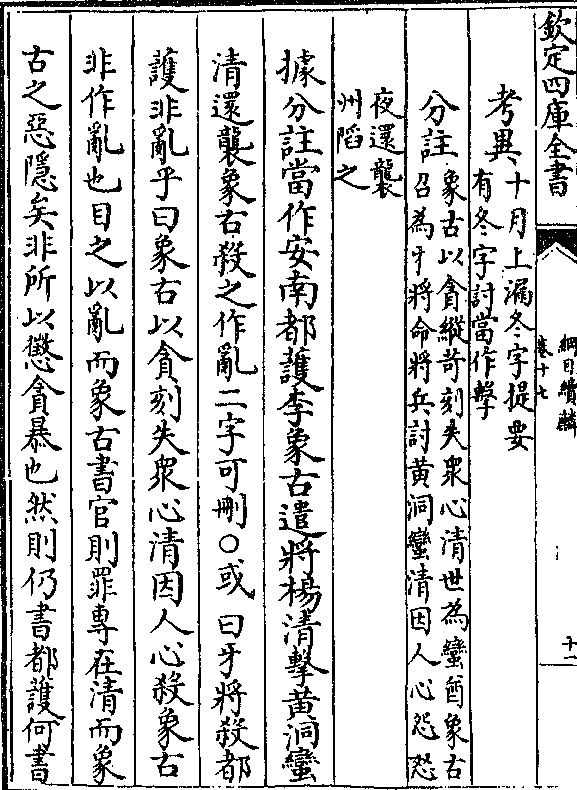 欽定四庫全書
綱目續麟
卷十七
十一
考異十月上漏冬字提要
有冬字討當作擊
分註象古以貪縱苛刻失衆心清世為蠻酋象古
召為牙將命將兵討黃洞蠻清因人心怨怒
夜還襲
州陷之
據分註當作安南都護李象古遣將楊清擊黃洞蠻
清還襲象古殺之作亂二字可刪○或曰牙將殺都
護非亂乎曰象古以貪刻失衆心清因人心殺象古
非作亂也目之以亂而象古書官則罪專在清而象
古之惡隱矣非所以懲貪暴也然則仍書都護何書